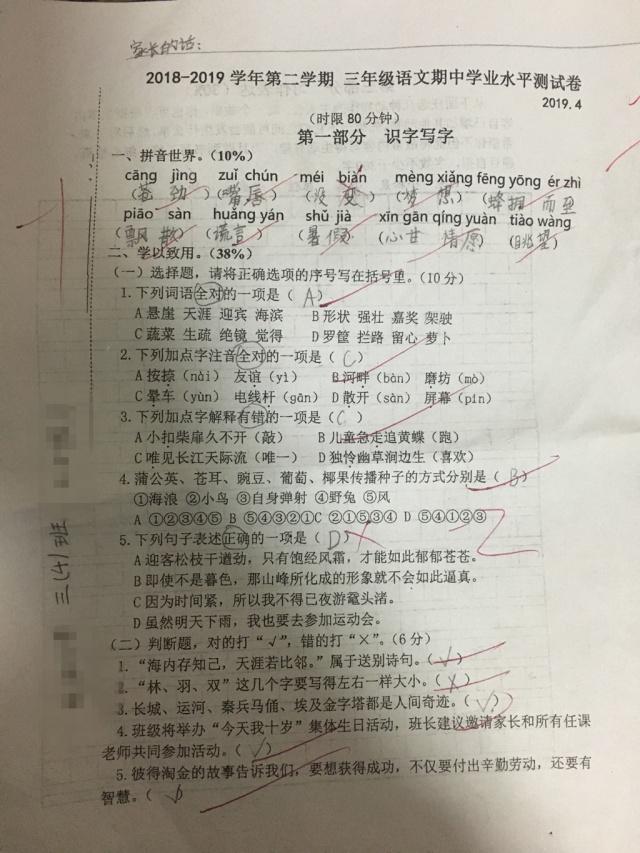 家长的话：
2018-2019 学年第二学期 三年级语文期中学业水平测试卷
2019.4
（时限 80 分钟）
第一部分 识字写字
一、拼音世界。（10%）
cāng jìng zuǐ chún méi biàn mèng xiǎng fēng yōng ér zhì
(苍 劲) (嘴唇) (没 变) (梦 想) (蜂拥 而至
piāo sàn huǎng yán shǔ jià xīn gān qíng yuàn tiào wàng
(飘 散) (谎言) (暑 假) (心甘 情愿) (眺望)
二、学以致用。（38%）
（一）选择题，请将正确选项的序号写在括号里。（10 分）
1.下列词语全对的一项是（ A ）
A 悬崖 天涯 迎宾 海滨 B 形状 强壮 嘉奖 架驶
C 蔬菜 生疏 绝镜 觉得 D 罗筐 拦路 留心 萝卜
2.下列加点字注音全对的一项是（ C ）
A 按捺（nài） 友谊（yì） B 河畔（bàn） 磨坊（mò）
C 晕车（yùn） 电线杆（gān） D 散开（sàn） 屏幕（pín）
3.下列加点字解释有错的一项是（ C ）
A 小扣柴扉久不开（敲） B 儿童急走追黄蝶（跑）
C 唯见长江天际流（唯一） D 独怜幽草涧边生（喜欢）
4.蒲公英、苍耳、豌豆、葡萄、椰果传播种子的方式分别是（ B ）
①海浪 ②小鸟 ③自身弹射 ④野兔 ⑤风
A ①②③④⑤ B ⑤④③②①C ②①⑤③④ D ⑤④①②③
5.下列句子表述正确的一项是（ D ）
A 迎客松枝干遒劲，只有饱经风霜，才能如此郁郁苍苍。
B 即使不是暮色，那山峰所化成的形象就不会如此逼真。
C 因为时间紧，所以我不得已夜游鼋头渚。
D 虽然明天下雨，我也要去参加运动会。
（二）判断题，对的打“√”，错的打“×”。（6 分）
1.“海内存知己，天涯若比邻。”属于送别诗句。（√）
2.“林、羽、双”这几个字要写得左右一样大小。（×）
3.长城、运河、秦兵马俑、埃及金字塔都是人间奇迹。（√）
4.班级将举办“今天我十岁”集体生日活动，班长建议邀请家长和所有任课
老师共同参加活动。（√）
5.彼得淘金的故事告诉我们，要想获得成功，不仅要付出辛勤劳动，还要有
智慧。（√）
三(4)班